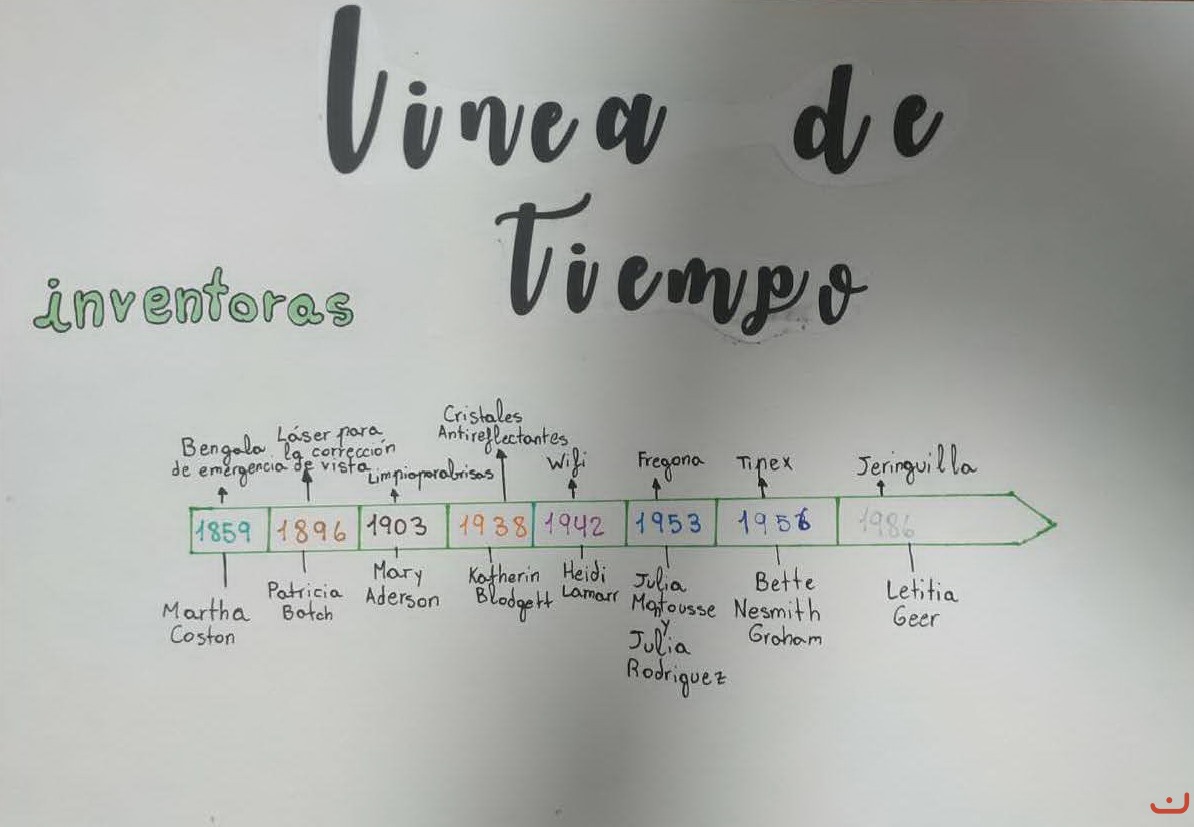 Linea de
Tiempo
inventoras
Bengala
de emergencia
Láser para
la corrección
de vista
Limpiaparabrisas
Cristales
Antireflectantes
Wifi
Fregona
Tipex
Jeringuilla
1859
1896
1903
1938
1942
1953
1956
1986
Martha
Coston
Patricia
Batch
Mary
Aderson
Katherin
Blodgett
Heidi
Lamarr
Julia
Montousse
y
Julia
Rodriguez
Bette
Nesmith
Graham
Letitia
Geer